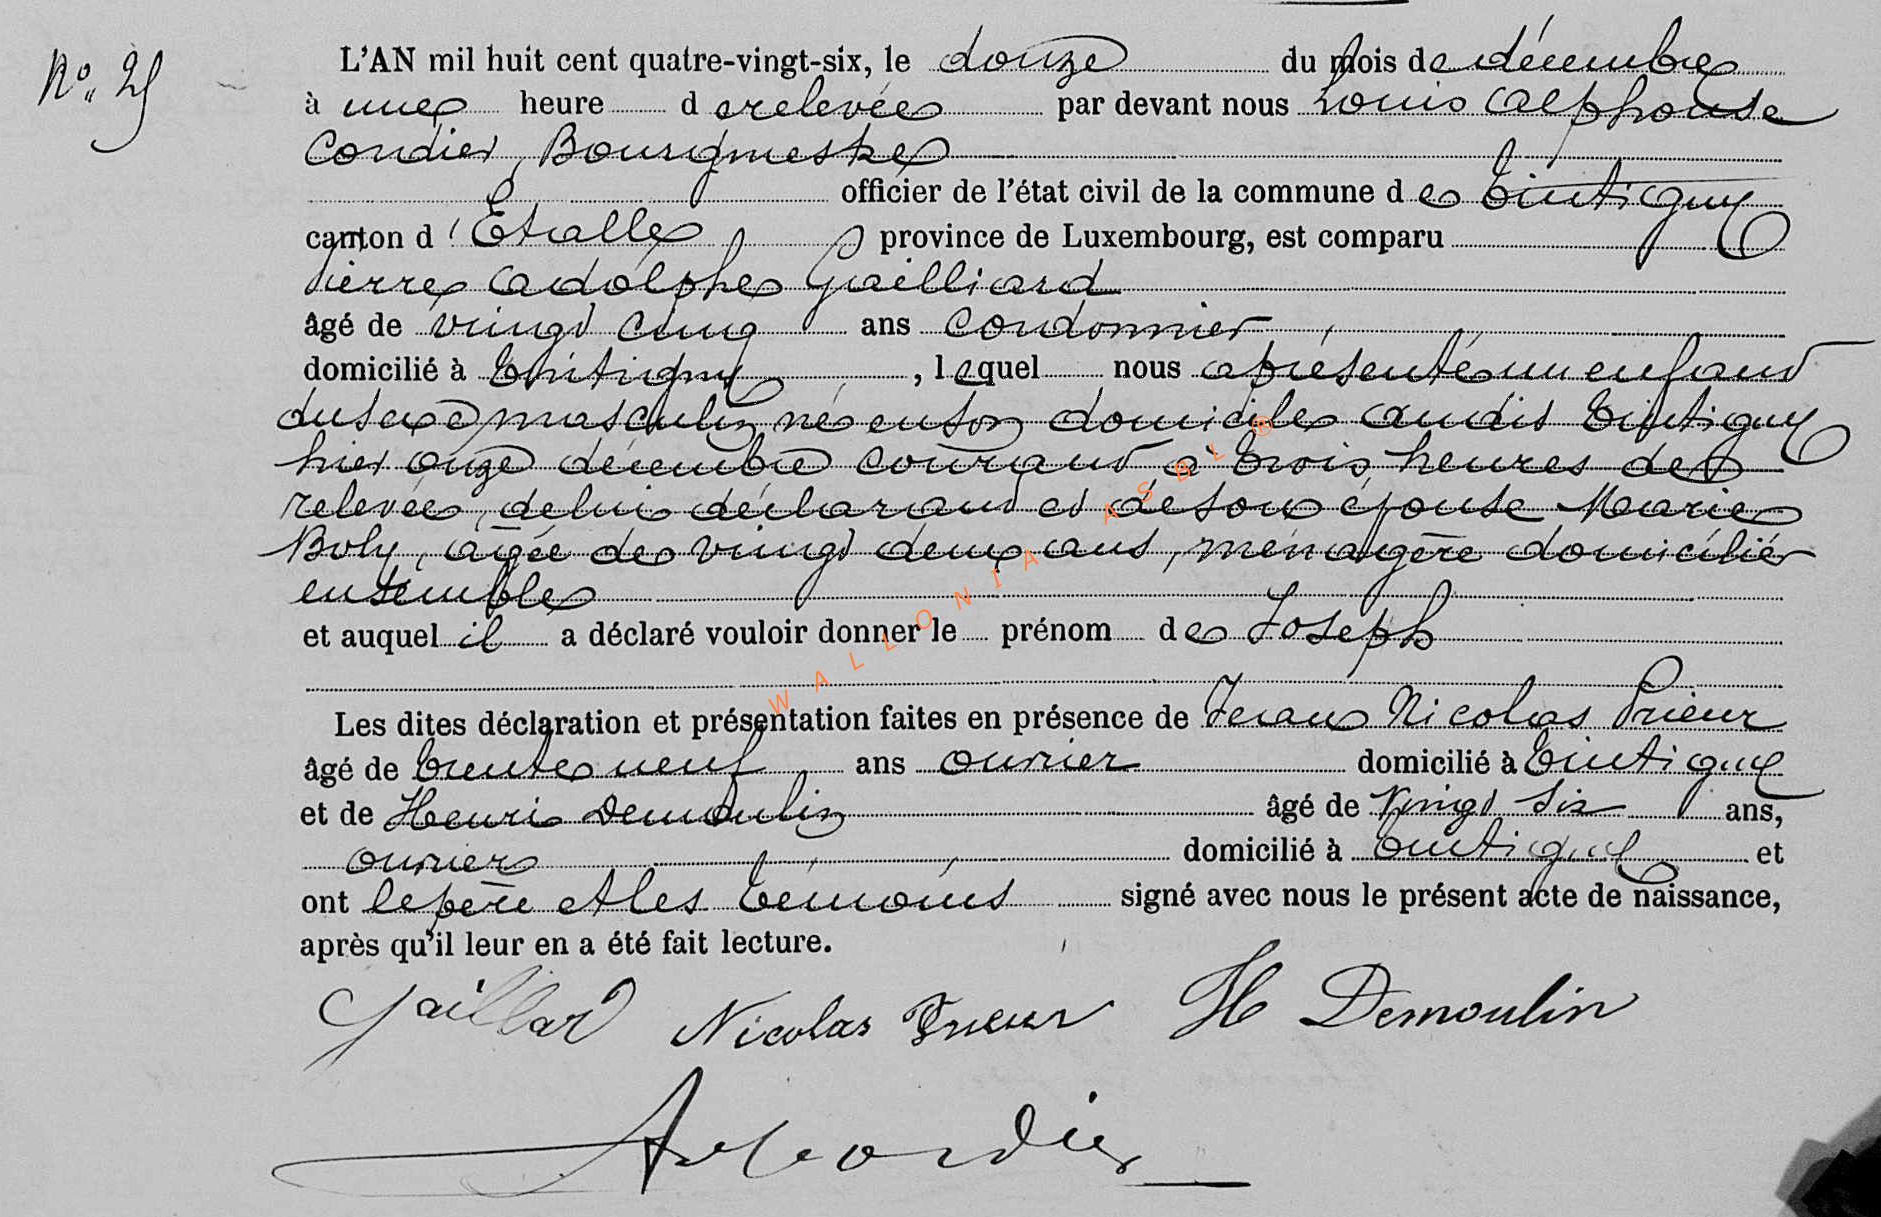 N° 25
L'AN mil huit cent quatre-vingt-six, le douze du mois de décembre
à une heure de relevée par devant nous Louis Alphonse
Cordier, Bourgmestre
officier de l'état civil de la commune de Tintigny
canton d'Etalle province de Luxembourg, est comparu
Pierre Adolphe Gailliard
âgé de vingt cinq ans cordonnier
domicilié à Tintigny, lequel nous a présenté un enfant
du sexe masculin né en son domicile audit Tintigny
hier onze décembre courant à trois heures de
relevée, de lui déclarant et de son épouse Marie
Boly, âgée de vingt deux ans, ménagère domiciliés
ensemble
et auquel il a déclaré vouloir donner le prénom de Joseph
Les dites déclaration et présentation faites en présence de Jean Nicolas Prieur
âgé de trente neuf ans ouvrier domicilié à Tintigny
et de Henri Demoulin âgé de vingt six ans,
ouvrier domicilié à Tintigny et
ont le père et les témoins signé avec nous le présent acte de naissance,
après qu'il leur en a été fait lecture.
Gaillard Nicolas Prieur H Demoulin
Cordier
WALLONIA ASBL ®